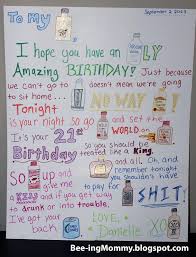 September 2, 2023
To my
I hope you have an LY
Amazing BIRTHDAY! Just because
we can't go to doesn't mean we're going
to sit home... NO WAY
Tonight
is your night so go and set the WORLD on
It's your 21st so you should
Birthday be treated like a King.
and all. Oh, and
SO up and remember tonight
give me a You shouldn't have
KISS and if you get way to pay for
drunk or in trouble. SHIT!
I've got your LOVE,
back Danielle XO
Bee-ingMommy.blogspot.com